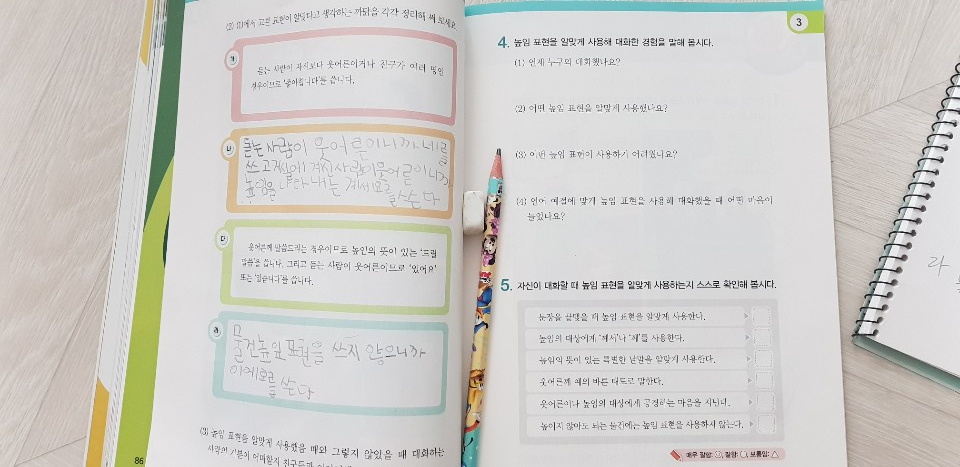 (2) (1)에서 고른 표현이 알맞다고 생각하는 까닭을 각각 정리해 써 보세요.
가
듣는 사람이 자신보다 웃어른이거나 친구가 여러 명인
경우이므로 '좋아합니다'를 씁니다.
나
듣는 사람이 웃어른이니까 네를
쓰고 거실에 계신 사람이 웃어른이니까
높임을 나타내는 계세요로
쓴다
다
웃어른께 말씀드리는 경우이므로 높임의 뜻이 있는 '드릴
말씀'을 씁니다. 그리고 듣는 사람이 웃어른이므로 '있어요'
또는 '있습니다'를 씁니다.
라
물건높임표현을 쓰지 않으니까
이에요를 쓴다
(3) 높임 표현을 알맞게 사용했을 때와 그렇지 않았을 때 대화하는
86
3
4. 높임 표현을 알맞게 사용해 대화한 경험을 말해 봅시다.
(1) 언제 누구와 대화했나요?
(2) 어떤 높임 표현을 알맞게 사용했나요?
(3) 어떤 높임 표현이 사용하기 어려웠나요?
(4) 언어 예절에 맞게 높임 표현을 사용해 대화했을 때 어떤 마음이
들었나요?
5. 자신이 대화할 때 높임 표현을 알맞게 사용하는지 스스로 확인해 봅시다.
문장을 끝맺을 때 높임 표현을 알맞게 사용한다.
높임의 대상에게 '께서'나 '께'를 사용한다.
높임의 뜻이 있는 특별한 낱말을 알맞게 사용한다.
웃어른께 예의 바른 태도로 말한다.
웃어른이나 높임의 대상에게 공경하는 마음을 지닌다.
높이지 않아도 되는 물건에는 높임 표현을 사용하지 않는다.
매우 잘함: ◎, 잘함: ○, 보통임: △
라